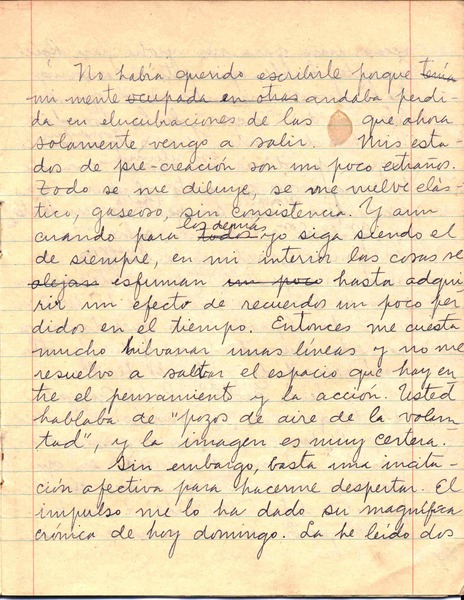 No había querido escribirle porque tenía
mi mente ocupada en otras andaba perdi-
da en elucubraciones de las que ahora
solamente vengo a salir. Mis esta-
dos de pre-creación son un poco extraños.
Todo se me diluye, se me vuelve elás-
tico, gaseoso, sin consistencia. Y aun
los demás
cuando para todos yo siga siendo el
de siempre, en mi interior las cosas se
alejan esfuman un poco hasta adqui-
rir un efecto de recuerdos un poco per-
didos en el tiempo. Entonces me cuesta
mucho hilvanar unas líneas y no me
resuelvo a saltar el espacio que hay en-
tre el pensamiento y la acción. Usted
hablaba de "pozos de aire de la volun-
tad", y la imagen es muy certera.
Sin embargo, basta una incita-
ción afectiva para hacerme despertar. El
impulso me lo ha dado su magnífica
crónica de hoy domingo. La he leído dos